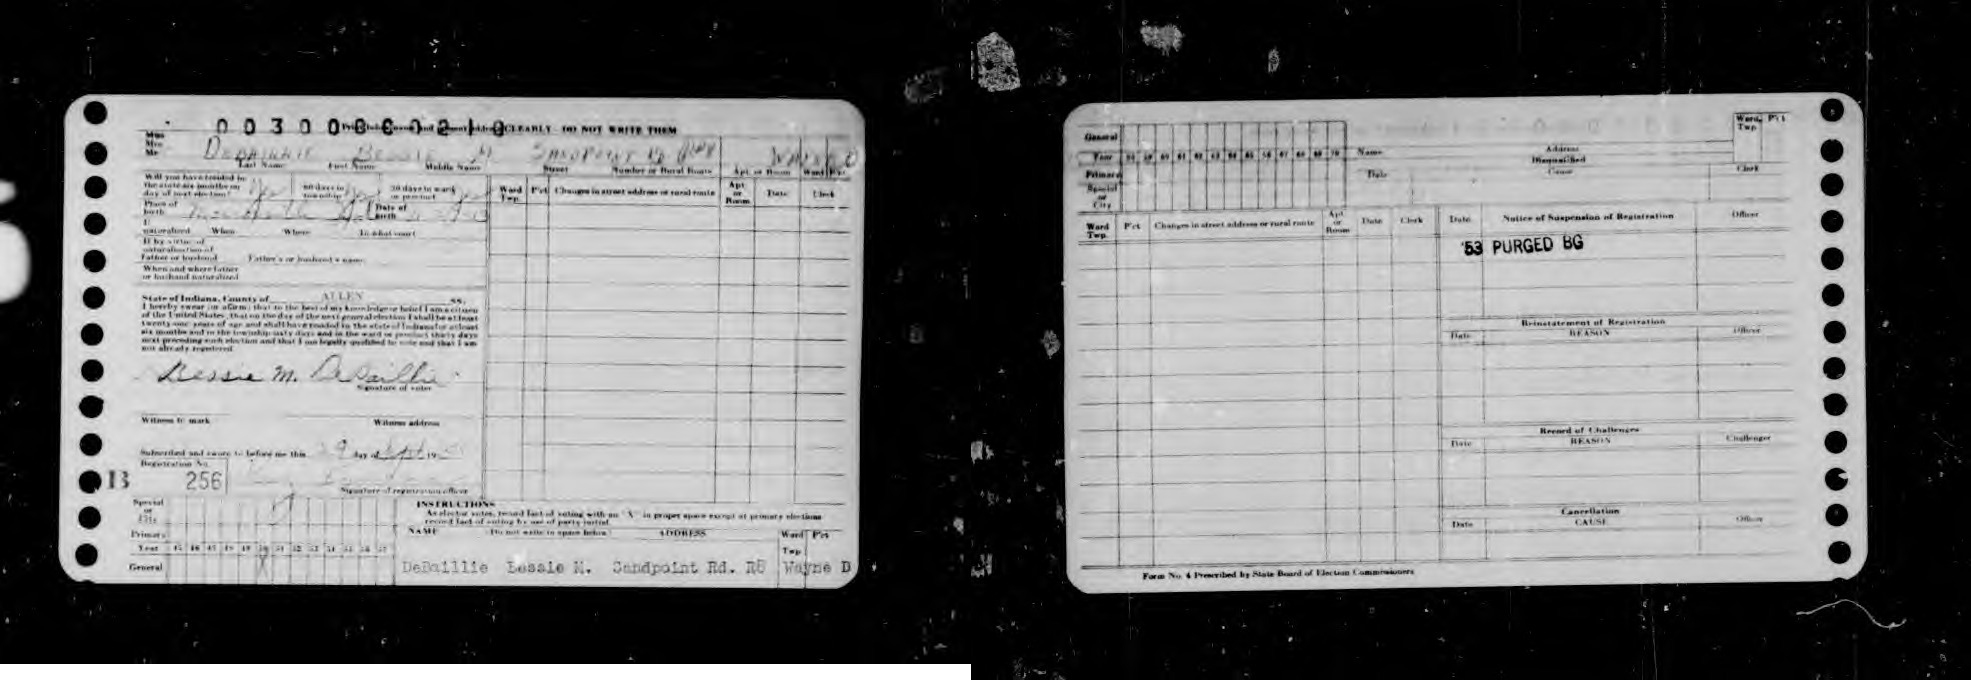 0030000210
CLEARLY - DO NOT WRITE THEM
Miss
Mrs
Mr
DeBaillie Bessie M Sandpoint Rd Wayne D
Last Name First Name Middle Name Street Number or Rural Route Apt. or Room Ward Pct
Will you have resided in
the state six months on
day of next election? Yes 60 days in
township 30 days in ward
or precinct
Place of
birth Date of
birth
If
naturalized When Where In what court
If by virtue of
naturalization of
Father or husband Father's or husband's name
When and where father
or husband naturalized
State of Indiana, County of ALLEN ss.
I hereby swear or affirm, that to the best of my knowledge or belief I am a citizen
of the United States, that on the day of the next general election I shall be at least
twenty-one years of age and shall have resided in the state of Indiana for at least
six months and in the township sixty days and in the ward or precinct thirty days
next preceding such election and that I am legally qualified to vote and that I am
not already registered
Bessie M. DeBaillie
Signature of voter
Witness to mark Witness address
Subscribed and sworn to before me this 9 day of Sept 19
Registration No.
B 256
Signature of registration officer
Ward
Twp. P'ct Changes in street address or rural route Apt
or
Room Date Clerk
Special
or
City
Primary
Year 45 46 47 48 49 50 51 52 53 54 55 56 57
General
INSTRUCTIONS
As elector votes, record fact of voting with an "X" in proper space except at primary elections
record fact of voting by use of party initial
NAME Do not write in space below ADDRESS Ward P'ct
Twp
DeBaillie Bessie M. Sandpoint Rd. R8 Wayne D
General
Year 58 59 60 61 62 63 64 65 66 67 68 69 70
Primary
Special
or
City
Name Address Ward, P'ct
Twp
Disqualified
Date Cause Clerk
Ward
Twp. P'ct Changes in street address or rural route Apt
or
Room Date Clerk
Date Notice of Suspension of Registration Officer
'53 PURGED BG
Reinstatement of Registration
Date REASON Officer
Record of Challenges
Date REASON Challenger
Cancellation
Date CAUSE Officer
Form No. 4 Prescribed by State Board of Election Commissioners